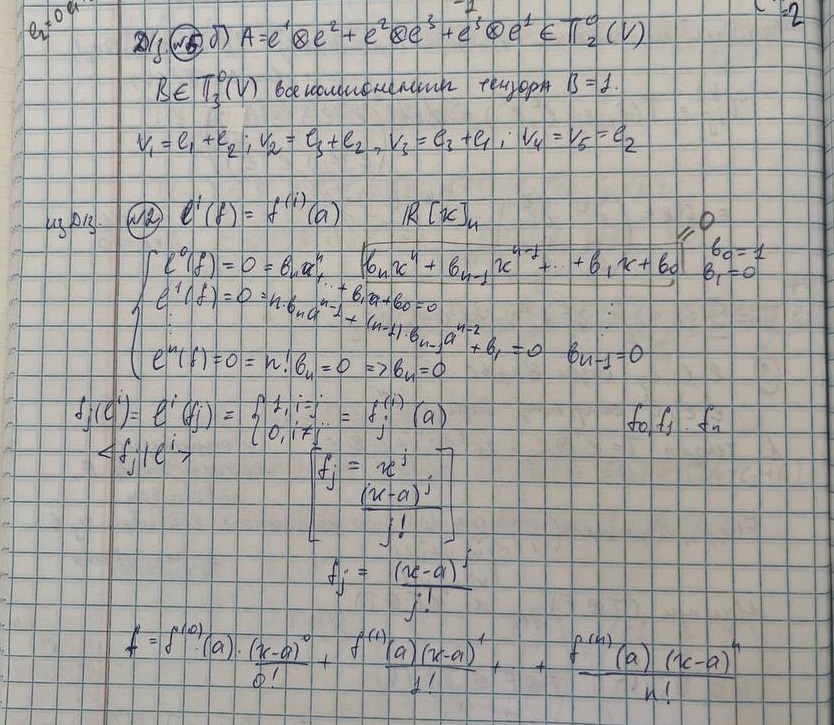 e₂=0
-1
=2
Д/з №5 б) A = e¹⊗e² + e²⊗e³ + e³⊗e¹ ∈ T₂⁰(V)
B ∈ T₃⁰(V) все компоненты тензора B = 1.
v₁ = e₁ + e₂; v₂ = e₃ + e₂, v₃ = e₃ + e₁; v₄ = v₅ = e₂
из Д/з. №2 lⁱ(f) = f⁽ⁱ⁾(a) ℝ[x]ₙ
l⁰(f) = 0 = bₙaⁿ + ... + b₁a + b₀ = 0 bₙxⁿ + bₙ₋₁xⁿ⁻¹ + ... + b₁x + b₀ = 0 b₀ = 1
l¹(f) = 0 = n·bₙaⁿ⁻¹ + (n-1)·bₙ₋₁aⁿ⁻² + b₁ = 0 b₁ = 0
⋮ ⋮
lⁿ(f) = 0 = n! bₙ = 0 => bₙ = 0 bₙ₋₁ = 0
fⱼ(lⁱ) = lⁱ(fⱼ) = { 1, i=j 0, i≠j = fⱼ⁽ⁱ⁾(a) f₀, f₁ .. fₙ
<fⱼ | lⁱ>
[ fⱼ = xʲ
(x-a)ʲ / j! ]
fⱼ = (x-a)ʲ / j!
f = f⁽⁰⁾(a)·(x-a)⁰ / 0! + f⁽¹⁾(a)(x-a)¹ / 1! + ... + f⁽ⁿ⁾(a)(x-a)ⁿ / n!